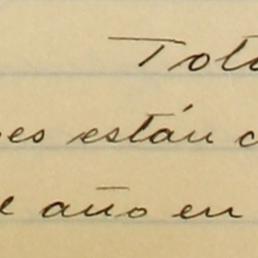 Tot
es están
año en